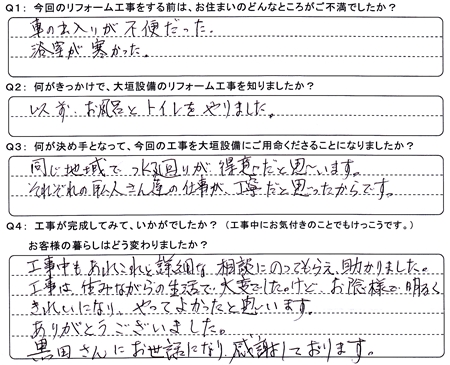 Q1：今回のリフォーム工事をする前は、お住まいのどんなところがご不満でしたか？
車の出入りが不便だった。
浴室が寒かった。
Q2：何がきっかけで、大垣設備のリフォーム工事を知りましたか？
以前お風呂とトイレをやりました。
Q3：何が決め手となって、今回の工事を大垣設備にご用命くださることになりましたか？
同じ地域で水回りが得意だと思います。
それぞれの職人さん達の仕事が、丁寧だと思ったからです。
Q4：工事が完成してみて、いかがでしたか？（工事中にお気付きのことでもけっこうです。）
お客様の暮らしはどう変わりましたか？
工事中もあれこれと詳細な相談にのってもらえ、助かりました。
工事は住みながらの生活で大変でした。けど、お陰様で明るく
きれいになり、やってよかったと思います。
ありがとうございました。
黒田さんにお世話になり感謝しております。